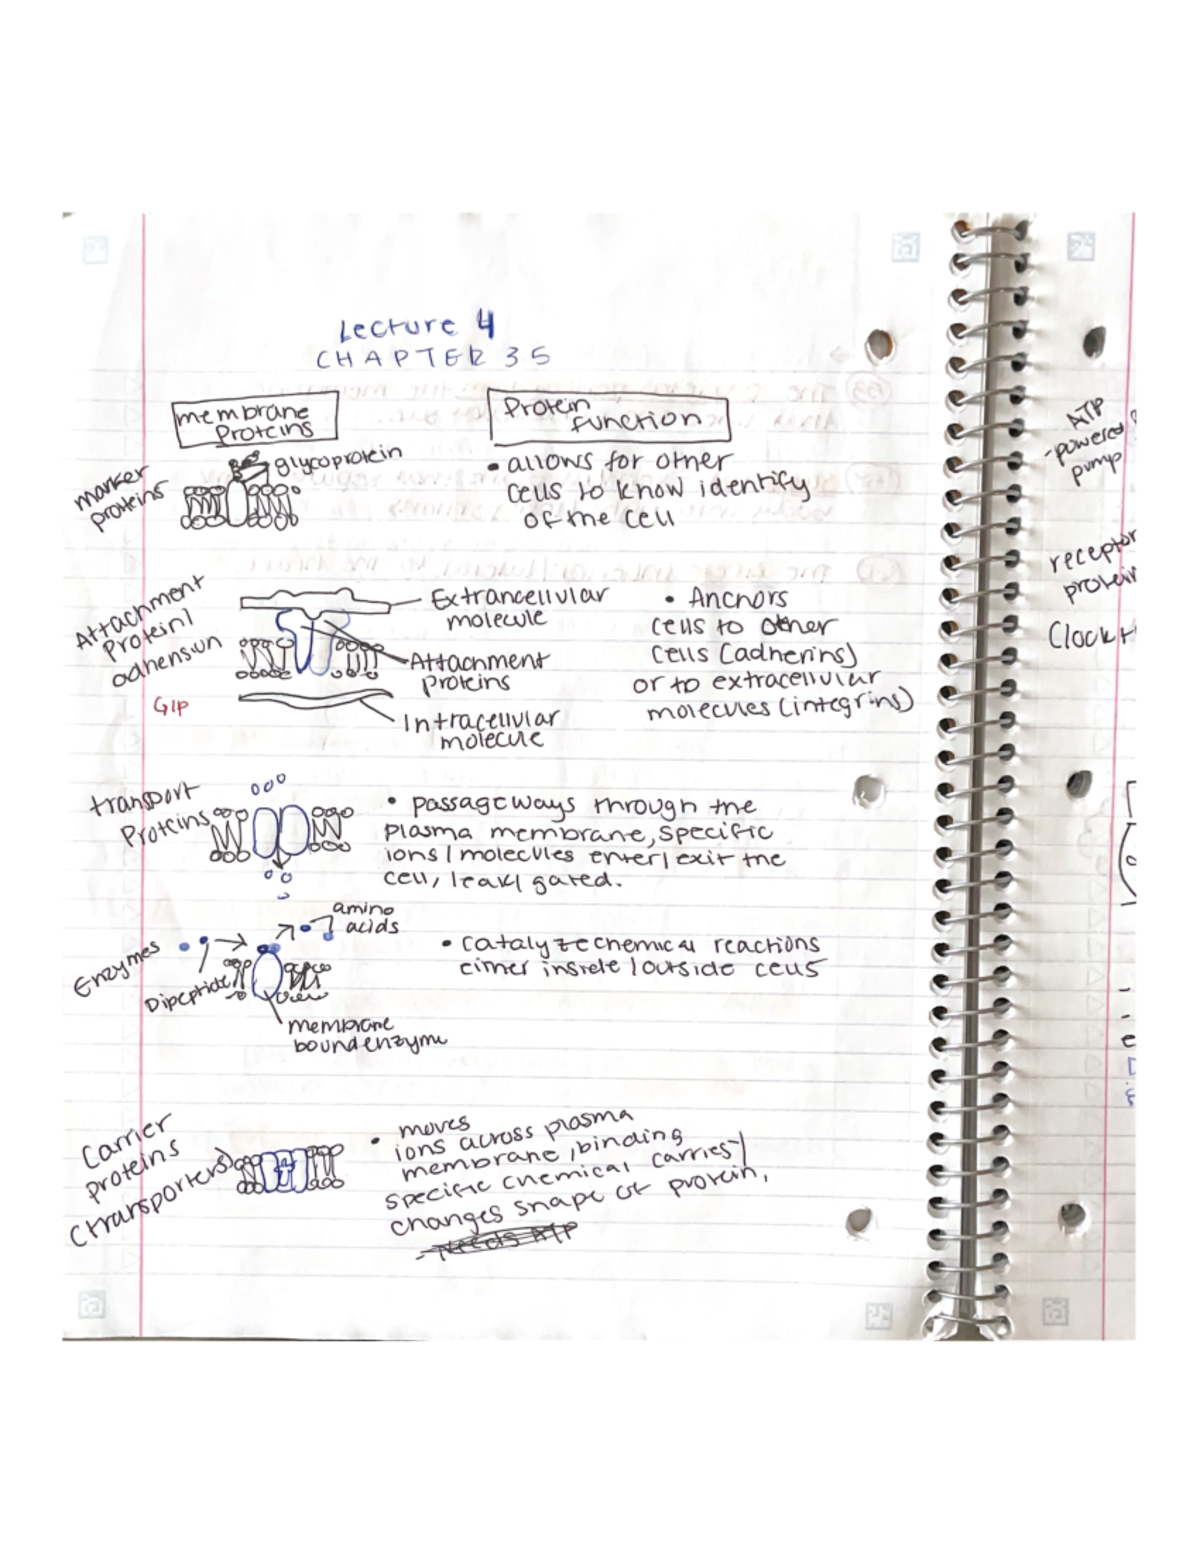 Lecture 4
CHAPTER 35
membrane
Proteins
Protein
Function
marker
proteins
glycoprotein
• allows for other
cells to know identify
of the cell
Attachment
Protein/
adhensun
Glp
Extrancellular
molecule
Attachment
proteins
Intracellular
molecule
• Anchors
cells to other
cells (adherins)
or to extracellular
molecules (integrins)
transport
Proteins
• passageways through the
plasma membrane, specific
ions/molecules enter/exit the
cell, leak/gated.
Enzymes
Dipeptide
amino
acids
membrane
bound enzyme
• catalyze chemical reactions
either insiele/outside cells
Carrier
proteins
(transporters)
• moves
ions across plasma
membrane, binding
specific chemical carries
changes shape of protein,
- Needs ATP
ATP
-powered
pump
receptor
protein
(lock +